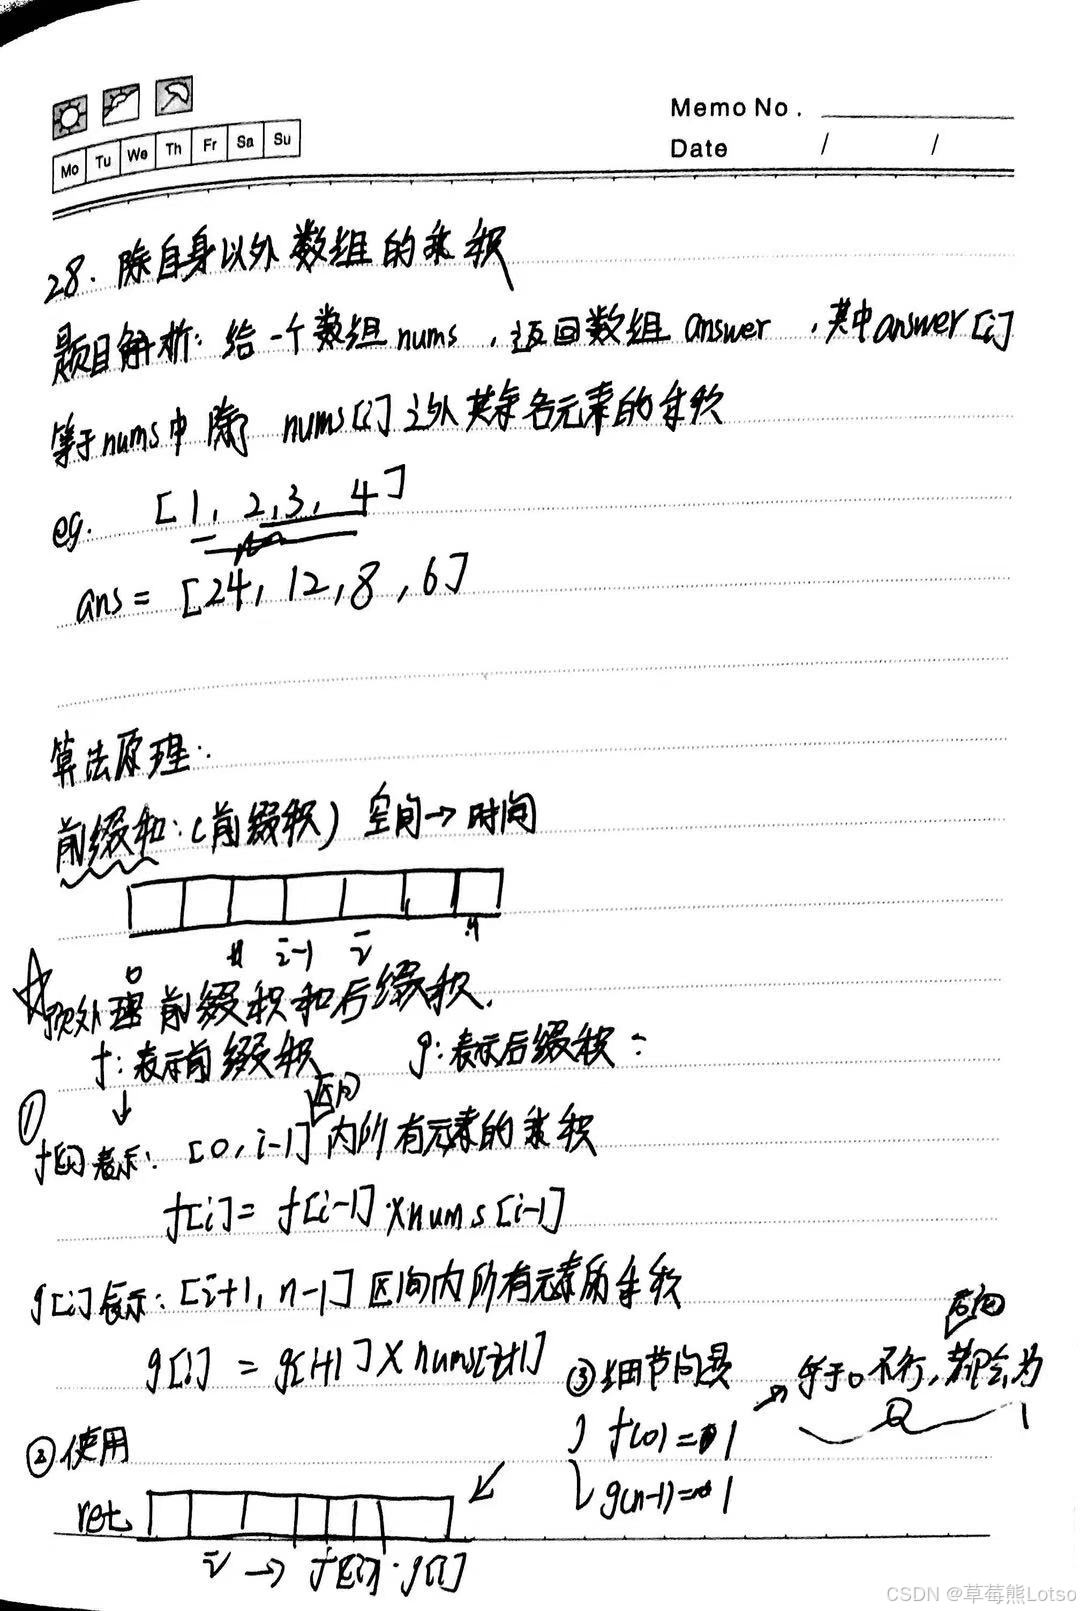 Memo No.
Mo Tu We Th Fr Sa Su
Date / /
28. 除自身以外数组的乘积
题目解析: 给一个数组nums, 返回数组 answer, 其中answer[i]
等于nums中除了 nums[i]之外其余各元素的乘积
eg. [1, 2,3, 4]
ans = [24, 12, 8, 6]
算法原理:
前缀和: (前缀积) 空间→时间
i-1 i
0
预处理前缀积和后缀积.
f: 表示前缀积 g: 表示后缀积:
区间
① f[i]表示: [0, i-1]内所有元素的乘积
f[i] = f[i-1] × nums[i-1]
g[i]表示: [i+1, n-1]区间内所有元素的乘积
g[i] = g[i+1] × nums[i+1]
③细节问题 → 等于0不行, 都会为
0
f(0) = 1
g(n-1) = 1
②使用
ret
i → f[i]·g[i]
CSDN @草莓熊Lotso